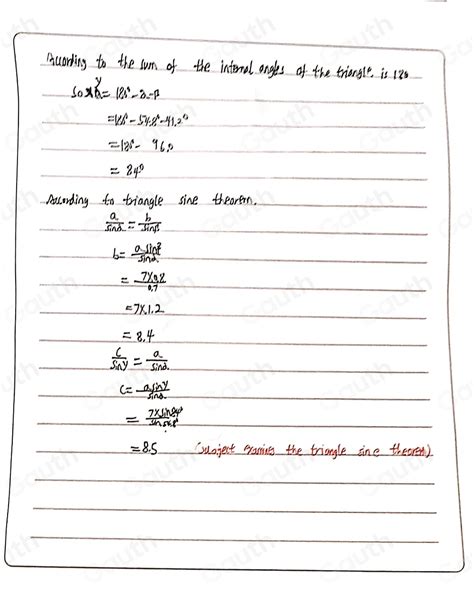 According to the sum of the internal angles of the triangle is 180
So γ = 180° - α - β
= 180° - 54.8° - 41.2°
= 180° - 96.0
= 84°
According to triangle sine theorem.
a/sinα = b/sinβ
b = a sinβ/sinα
= 7×0.8/0.7
= 7×1.2
= 8.4
c/sinγ = a/sinα
c = a sinγ/sinα
= 7×sin84°/sin54.8°
= 8.5 (subject the triangle sine theorem)